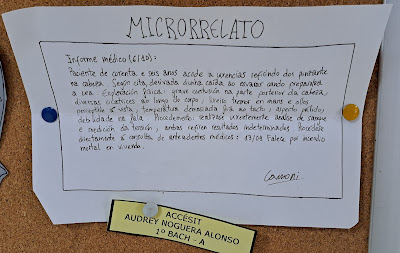 MICRORRELATO
Informe médico (6/10):
Paciente de corenta e seis anos acode a urxencias referindo dor punzante
na cabeza. Según cita, derivada dunha caída, ao esvarar cando preparaba
a cea. Exploración física: grave contusión na parte posterior da cabeza,
diversas cicatrices ao longo do corpo, lixeiro tremor en mans e ollos
perceptible á vista, temperatura demasiada fría ao tacto, aspecto pálido,
debilidade na fala. Procedemento: realízase urxentemente análise de sangue
e medición da tensión, ambas refiren resultados indeterminados. Procédese
directamente á consulta de antecedentes médicos: 17/09 Faleceu por incendio
mortal en vivenda.
ACCÉSIT
AUDREY NOGUERA ALONSO
1º BACH - A